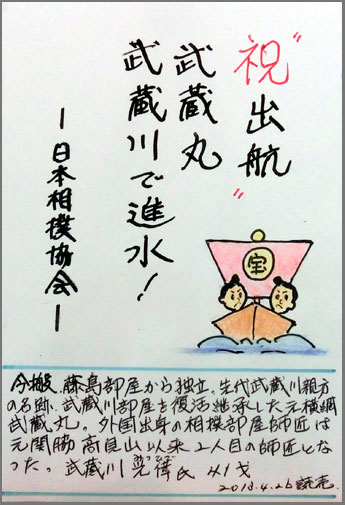 祝〝出航〟
武蔵丸
武蔵川で進水!
ー日本相撲協会ー
宝
今般、藤島部屋から独立、先代武蔵川親方
の名跡、武蔵川部屋を復活継承した元横綱
武蔵丸。外国出身の相撲部屋師匠は
元関脇高見山以来2人目の師匠とな
った。武蔵川光偉氏 41才
2013.4.26 読売